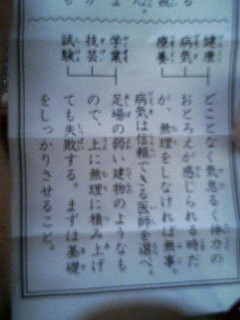 健康
病気
療養
どことなく気怠るく体力の
おとろえが感じられる時だ
が、無理をしなければ無事。
病気は信頼できる医師を選べ。
学業
技芸
試験
足場の弱い建物のようなも
ので、上に無理に積み上げ
ても失敗する。まずは基礎
をしっかりさせること。